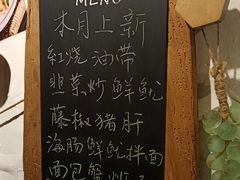 MENU
本月上新
红烧油带
韭菜炒鲜鱿
藤椒猪肝
海肠鲜鱿拌面
面包蟹炒